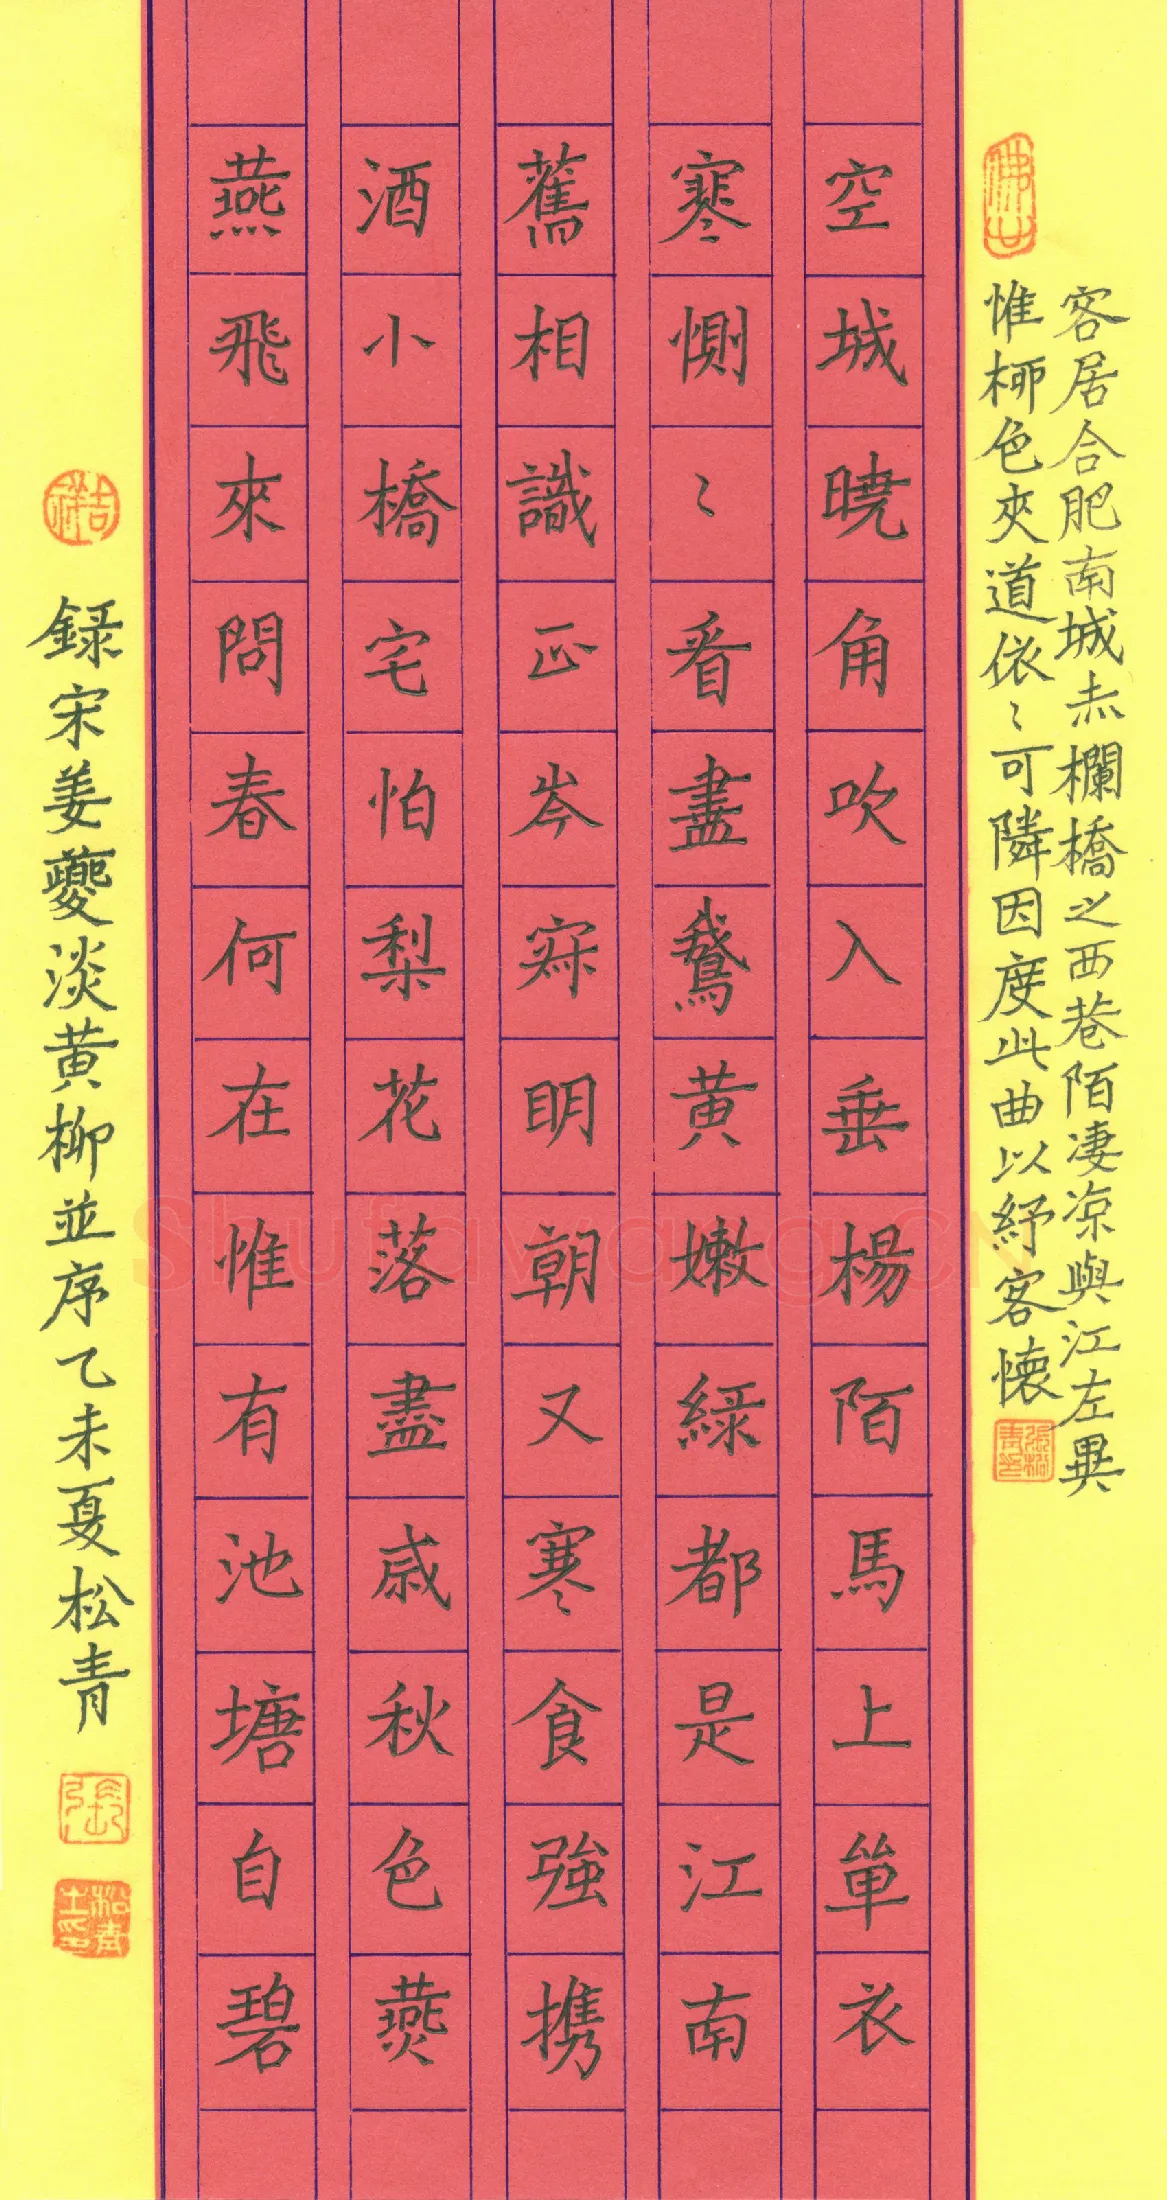 客居合肥南城赤欄橋之西巷陌凄涼與江左異
惟柳色夾道依〻可隣因度此曲以紓客懷
空城曉角吹入垂楊陌馬上單衣
寒惻〻看盡鵞黃嫩綠都是江南
舊相識正岑寂明朝又寒食強攜
酒小橋宅怕梨花落盡成秋色燕
燕飛來問春何在惟有池塘自碧
錄宋姜夔淡黃柳並序乙未夏松青
吉祥
張
松青
Shufawang.CN